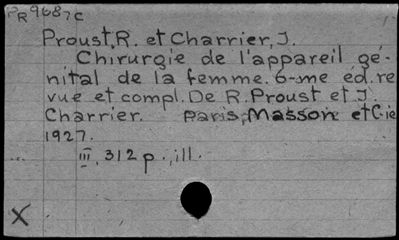 PR9687C
Proust, R. et Charrier, J.
Chirurgie de l'appareil gé-
nital de la femme. 6-me ed. re
vue et compl. De R. Proust et J.
Charrier. Paris, Masson et Cie
1927.
III, 312 p., ill.
X